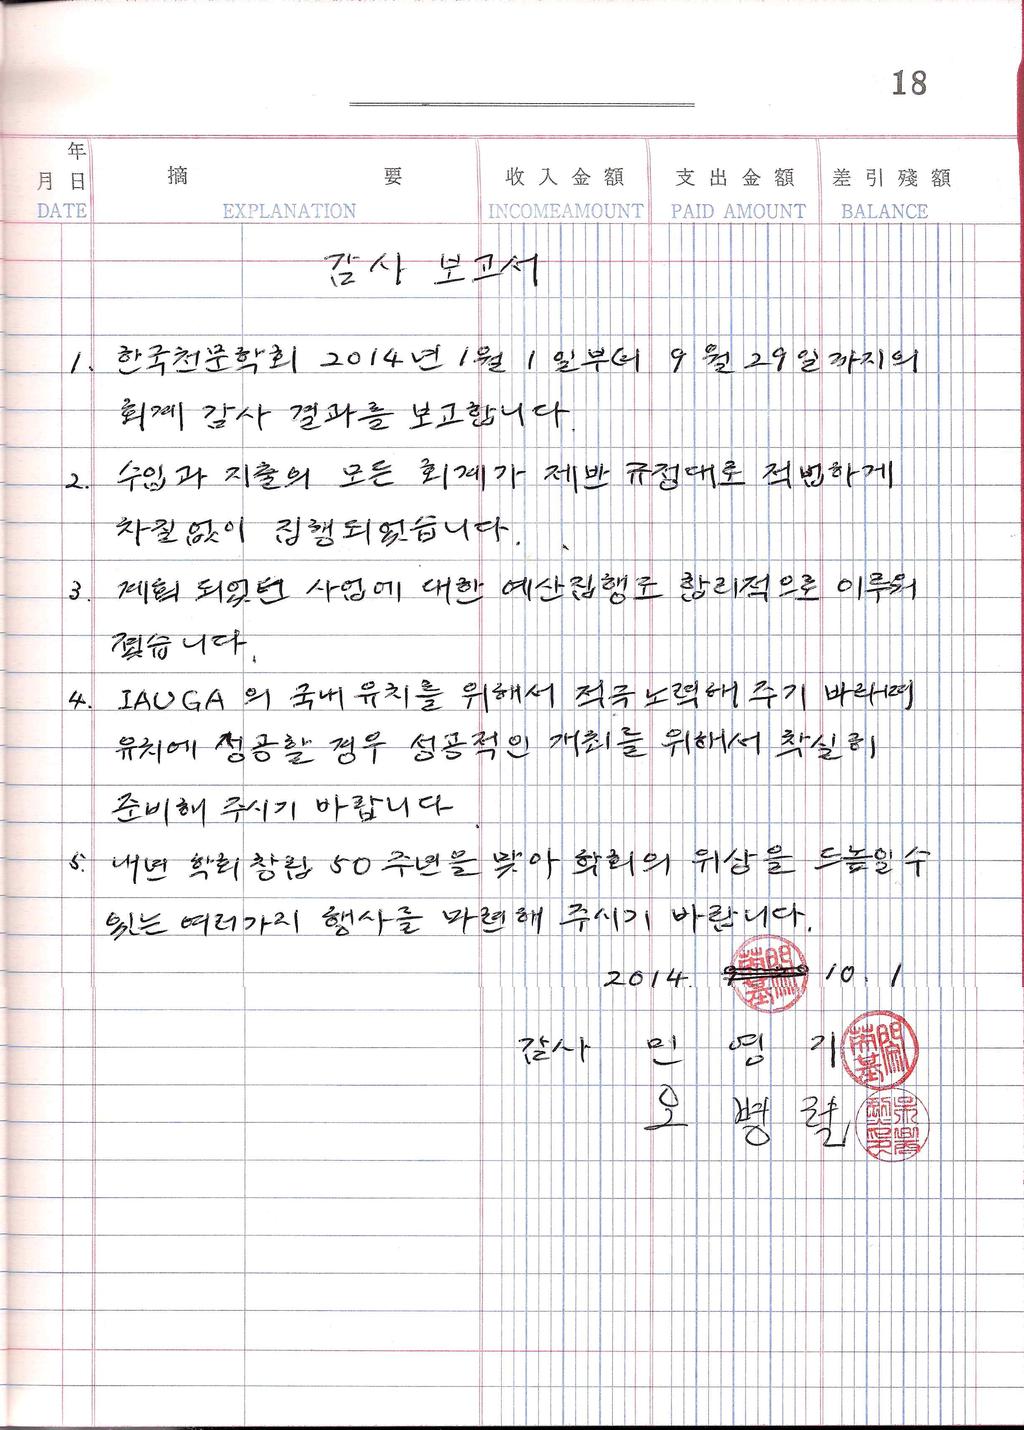 18
年
月 日 摘 要 收 入 金 額 支 出 金 額 差 引 殘 額
DATE EXPLANATION INCOMEAMOUNT PAID AMOUNT BALANCE
감사 보고서
1. 한국천문학회 2014년 1월 1일부터 9월 29일까지의
회계 감사 결과를 보고합니다.
2. 수입과 지출의 모든 회계가 제반 규정대로 적법하게
차질없이 집행되었습니다.
3. 계획 되었던 사업에 대한 예산집행도 합리적으로 이루워
졌습니다.
4. IAUGA 의 국내 유치를 위해서 적극 노력해 주기 바라며
유치에 성공할 경우 성공적인 개최를 위해서 착실히
준비해 주시기 바랍니다.
5. 내년 학회 창립 50 주년을 맞아 학회의 위상을 드높일 수
있는 여러가지 행사를 마련해 주시기 바랍니다.
2014. 10. 1
감사 민 영 기
오 병 렬